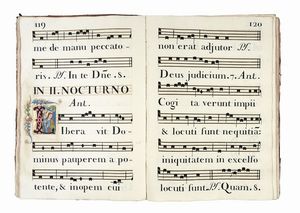 119
me de manu peccato-
ris. Ps. In te Dñe. 8.
IN II. NOCTURNO
Ant.
Libera vit Do-
minus pauperem a po-
tente, & inopem cui
120
non erat adjutor Ps.
Deus judicium. 7. Ant.
Cogi ta verunt impii
& locuti sunt nequitiã:
iniquitatem in excelso
locuti sunt. Ps. Quam. 8.